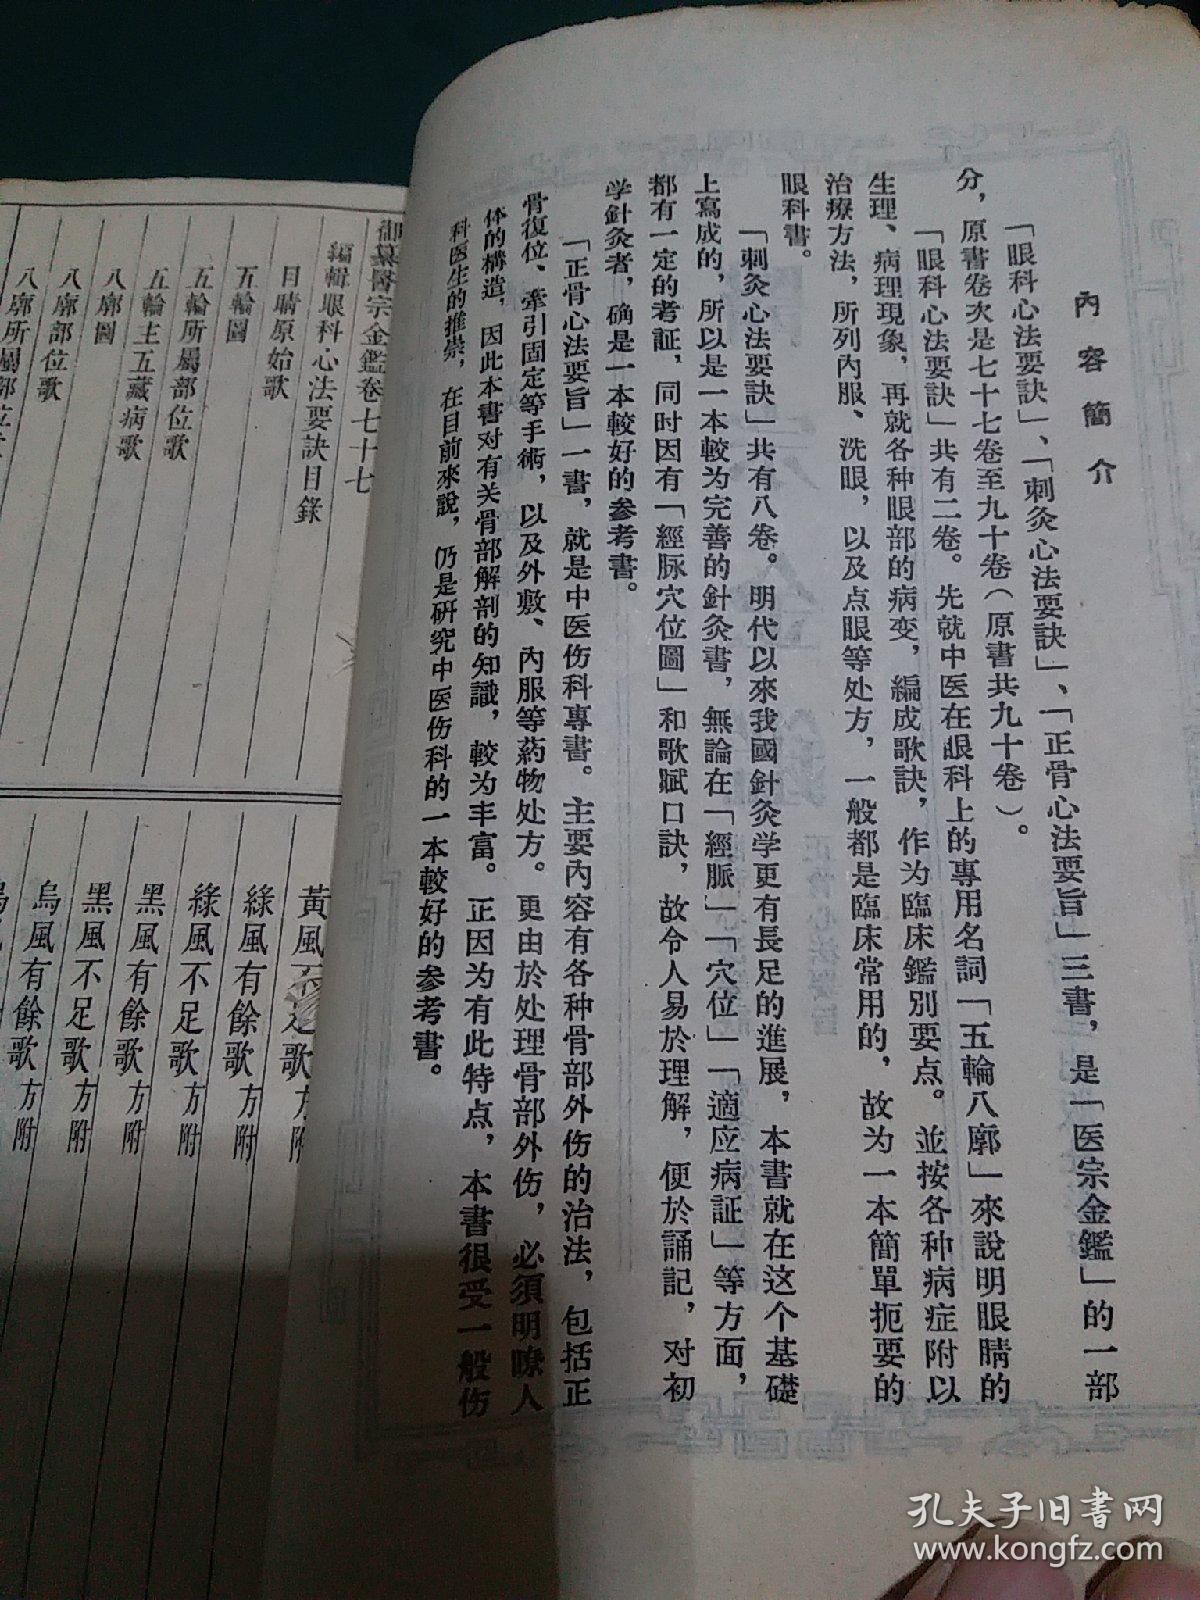 內容簡介
「眼科心法要訣」、「刺灸心法要訣」、「正骨心法要旨」三書，是「医宗金鑑」的一部
分，原書卷次是七十七卷至九十卷（原書共九十卷）。
「眼科心法要訣」共有二卷。先就中医在眼科上的專用名詞「五輪八廓」來說明眼睛的
生理、病理現象，再就各种眼部的病变，編成歌訣，作为臨床鑑別要点。並按各种病症附以
治療方法，所列內服、洗眼，以及点眼等处方，一般都是臨床常用的，故为一本簡單扼要的
眼科書。
「刺灸心法要訣」共有八卷。明代以來我國針灸学更有長足的進展，本書就在这个基礎
上寫成的，所以是一本較为完善的針灸書，無論在「經脈」「穴位」「適应病証」等方面，
都有一定的考証，同时因有「經脉穴位圖」和歌賦口訣，故令人易於理解，便於誦記，对初
学針灸者，确是一本較好的参考書。
「正骨心法要旨」一書，就是中医伤科專書。主要內容有各种骨部外伤的治法，包括正
骨復位、牽引固定等手術，以及外敷、內服等葯物处方。更由於处理骨部外伤，必須明瞭人
体的構造，因此本書对有关骨部解剖的知識，較为丰富。正因为有此特点，本書很受一般伤
科医生的推崇，在目前來說，仍是研究中医伤科的一本較好的参考書。
御纂醫宗金鑑卷七十七
編輯眼科心法要訣目錄
目睛原始歌
五輪圖
五輪所屬部位歌
五輪主五藏病歌
八廓圖
八廓部位歌
八廓所屬部位
黃風不足歌方
綠風有餘歌方附
綠風不足歌方附
黑風有餘歌方附
黑風不足歌方附
烏風有餘歌方附
孔夫子旧书网
www.kongfz.com